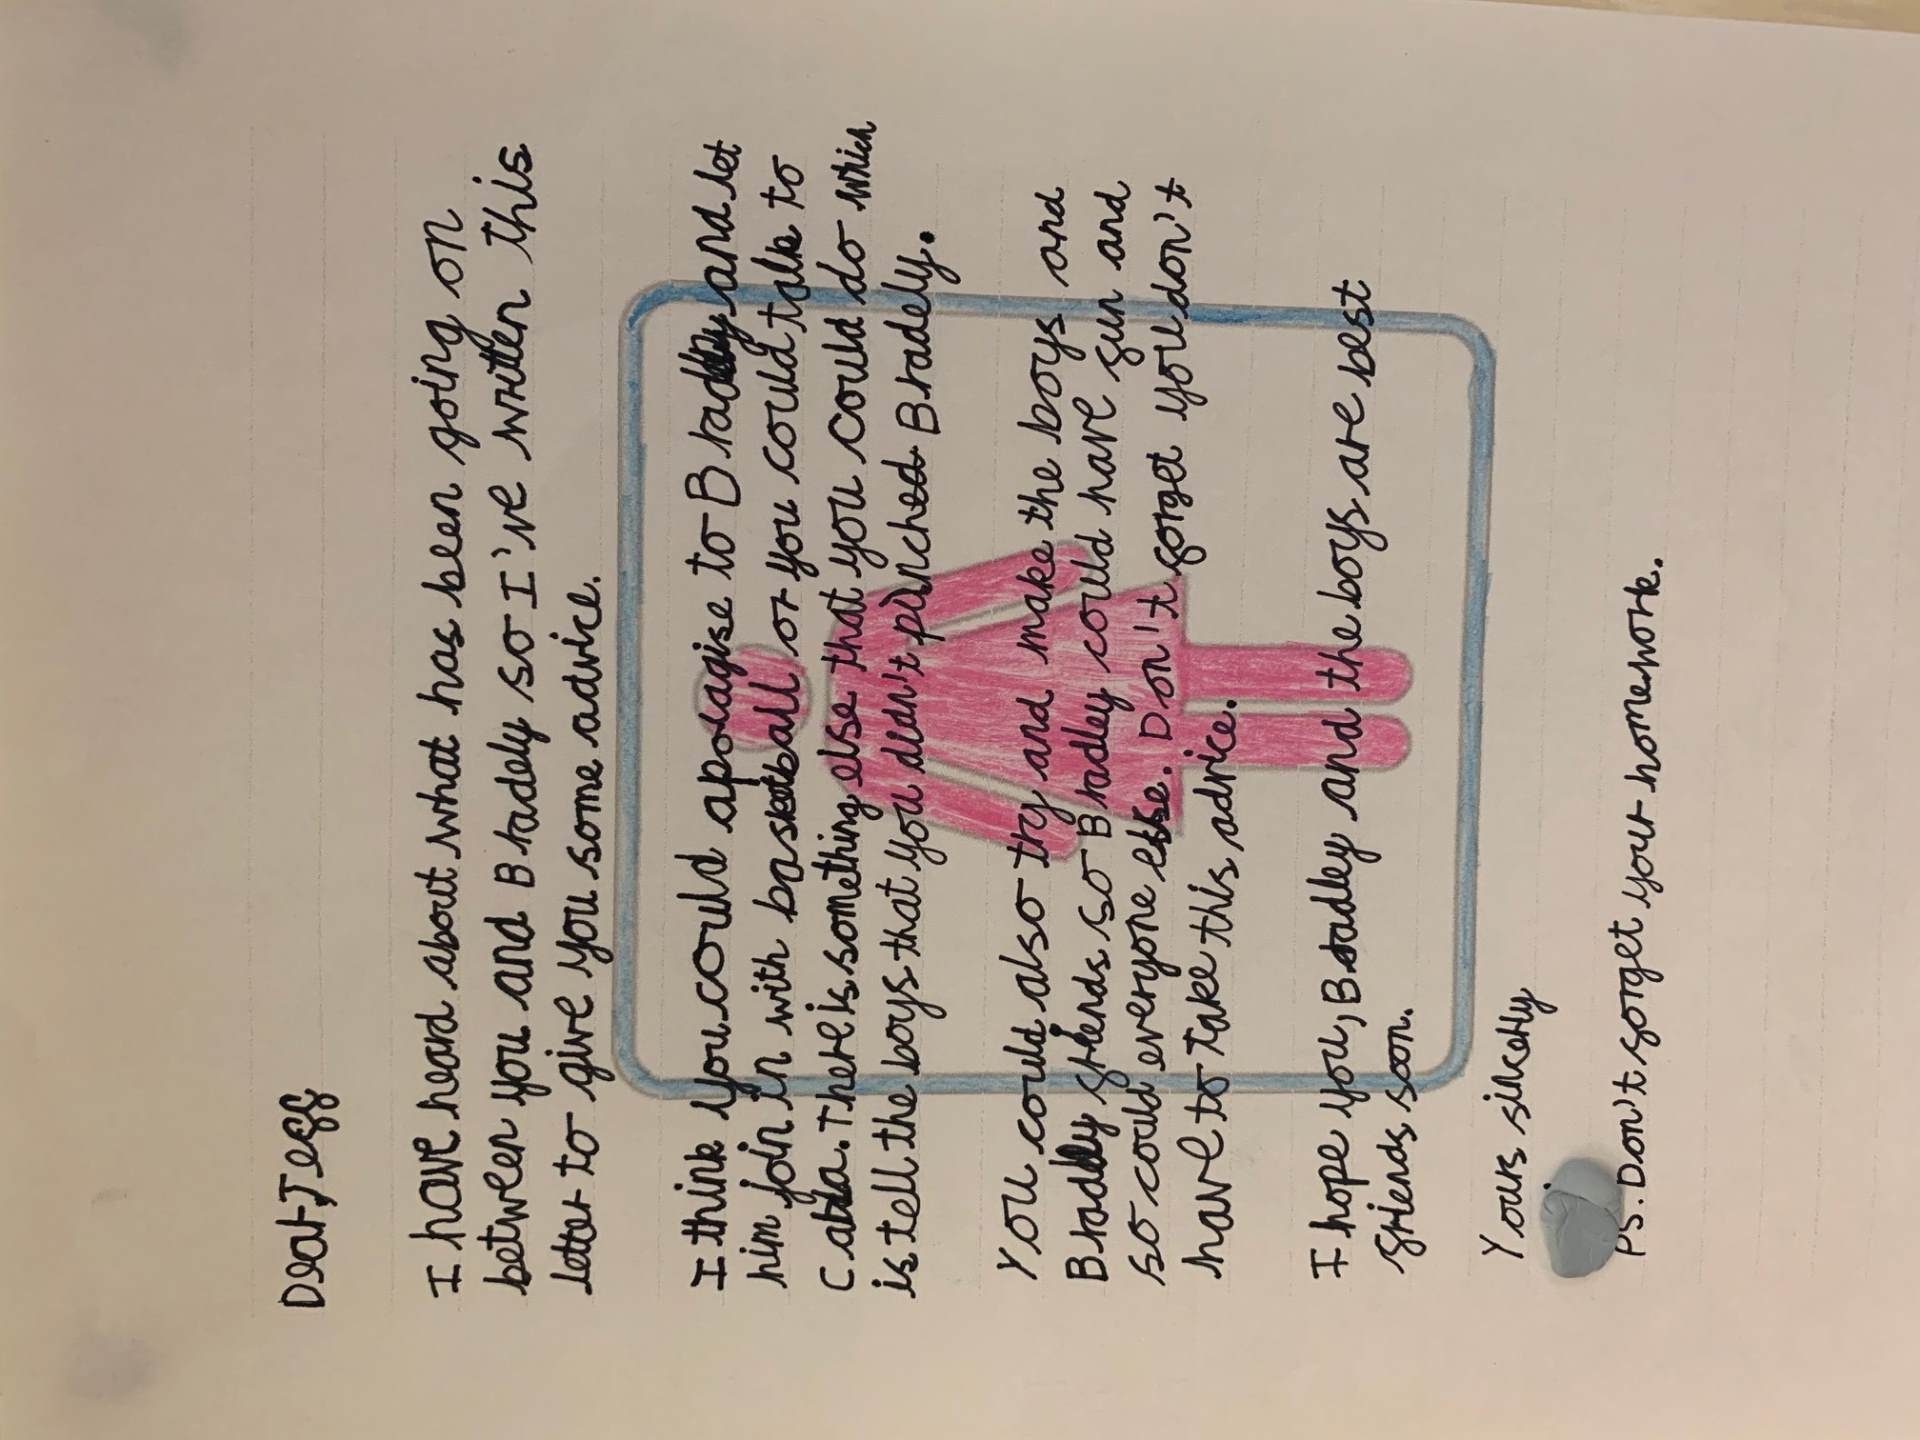 Dear, Jeff
I have heard about what has been going on
between you and Bradely so I've written this
letter to give you some advice.
I think you could apolagise to Bradley and let
him join in with basketball or you could talk to
Carla. There is something else that you could do which
is tell the boys that you didn't punched Bradely.
You could also try and make the boys and
Bradley friends so Bradley could have fun and
so could everyone else. Don't forget you don't
have to take this advice.
I hope you, Bradley and the boys are best
friends soon.
Yours sincerly
PS. Don't forget your homework.